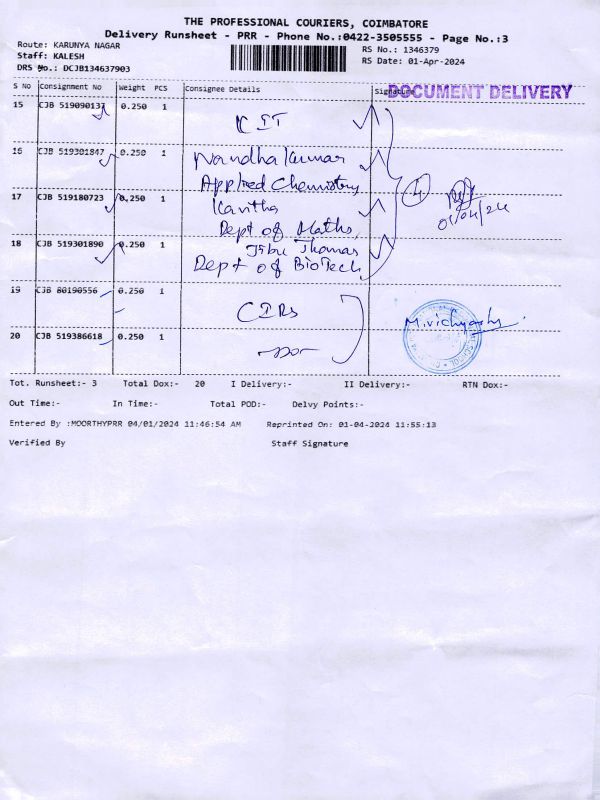 THE PROFESSIONAL COURIERS, COIMBATORE
Delivery Runsheet - PRR - Phone No.:0422-3505555 - Page No.:3
Route: KARUNYA NAGAR
RS No.: 1346379
Staff: KALESH
RS Date: 01-Apr-2024
DRS No.: DCJB134637903
S No Consignment No Weight PCS Consignee Details Signature
DOCUMENT DELIVERY
15 CJB 519090137 0.250 1
CIT
16 CJB 519301847 0.250 1 Nandhakumar
Applied Chemistry
17 CJB 519180723 0.250 1 Kavitha
Dept of Maths,
4
01/04/24
18 CJB 519301890 0.250 1 Jibu Thomas
Dept of BioTech
19 CJB 80190556 0.250 1
CIRs
20 CJB 519386618 0.250 1 -do-
Tot. Runsheet:- 3 Total Dox:- 20 I Delivery:- II Delivery:- RTN Dox:-
Out Time:- In Time:- Total POD:- Delvy Points:-
Entered By :MOORTHYPRR 04/01/2024 11:46:54 AM Reprinted On: 01-04-2024 11:55:13
Verified By Staff Signature